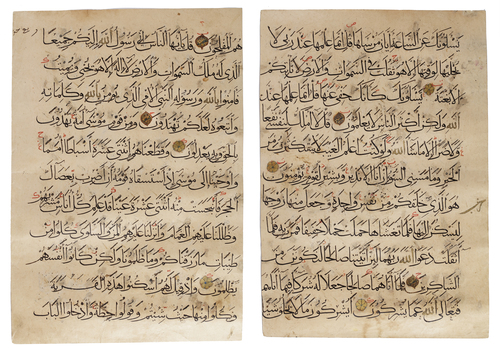 يسئلونك عن الساعة أيان مرسها قل إنما علمها عند ربي لا
يجليها لوقتها إلا هو ثقلت في السموات والأرض لا تأتيكم
إلا بغتة يسئلونك كأنك حفي عنها قل إنما علمها عند
الله ولكن أكثر الناس لا يعلمون قل لا أملك لنفسي نفعا
ولا ضرا إلا ما شاء الله ولو كنت أعلم الغيب لاستكثرت من
الخير وما مسني السوء إن أنا إلا نذير وبشير لقوم يؤمنون
هو الذي خلقكم من نفس واحدة وجعل منها زوجها
ليسكن إليها فلما تغشاها حملت حملا خفيفا فمرت به فلما
أثقلت دعوا الله ربهما لئن آتيتنا صالحا لنكونن من
الشاكرين فلما آتاهما صالحا جعلا له شركاء فيما آتاهما
فتعالى الله عما يشركون أيشركون ما لا يخلق شيئا
هم المفلحون قل يا أيها الناس إني رسول الله إليكم جميعا
الذي له ملك السموات والأرض لا إله إلا هو يحيي ويميت
فآمنوا بالله ورسوله النبي الأمي الذي يؤمن بالله وكلماته
واتبعوه لعلكم تهتدون ومن قوم موسى أمة يهدون
بالحق وبه يعدلون وقطعناهم اثنتي عشرة أسباطا أمما
وأوحينا إلى موسى إذ استسقاه قومه أن اضرب بعصاك
الحجر فانبجست منه اثنتا عشرة عينا قد علم كل أناس مشربهم
وظللنا عليهم الغمام وأنزلنا عليهم المن والسلوى كلوا من
طيبات ما رزقناكم وما ظلمونا ولكن كانوا أنفسهم
يظلمون وإذ قيل لهم اسكنوا هذه القرية
وكلوا منها حيث شئتم وقولوا حطة وادخلوا الباب